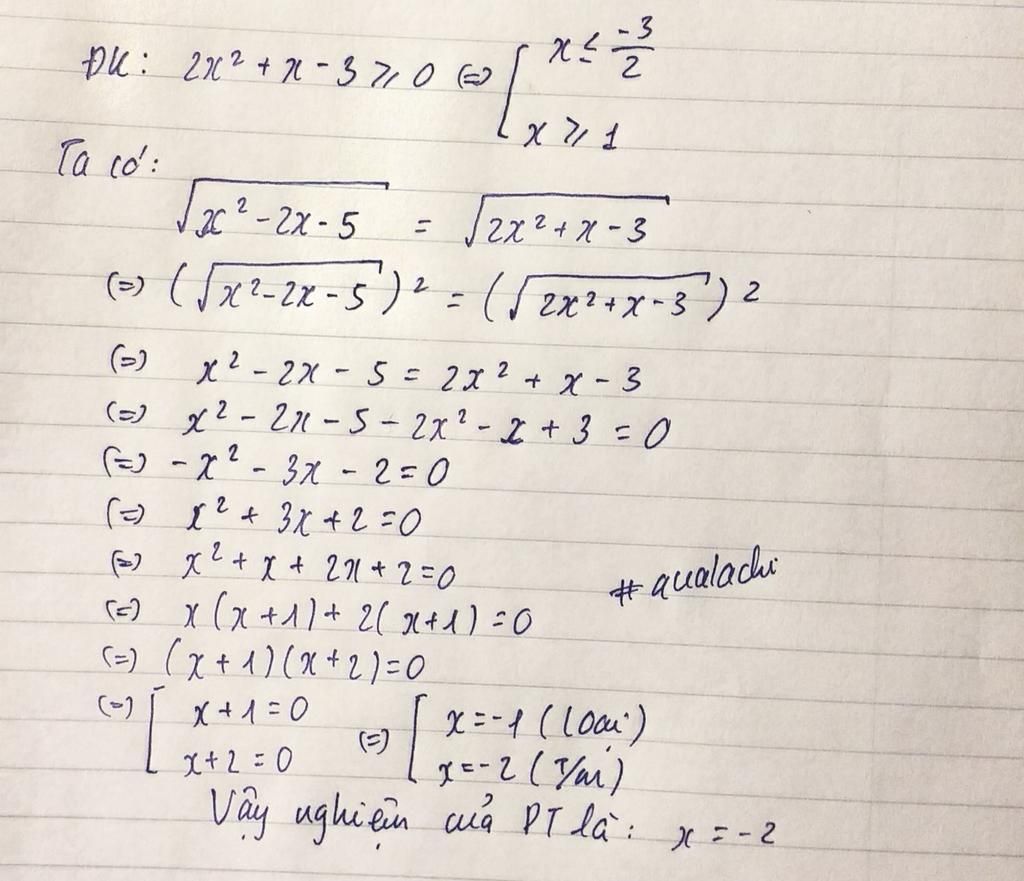 ĐK: 2x² + x - 3 ≥ 0 (=) [ x ≤ -3/2
x ≥ 1
Ta có:
√(x² - 2x - 5) = √(2x² + x - 3)
(=) (√(x² - 2x - 5))² = (√(2x² + x - 3))²
(=) x² - 2x - 5 = 2x² + x - 3
(=) x² - 2x - 5 - 2x² - x + 3 = 0
(=) -x² - 3x - 2 = 0
(=) x² + 3x + 2 = 0
(=) x² + x + 2x + 2 = 0
#aualachi
(=) x(x + 1) + 2(x + 1) = 0
(=) (x + 1)(x + 2) = 0
(=) [ x + 1 = 0 (=) [ x = -1 (loại)
x + 2 = 0 x = -2 (T/m)
Vậy nghiệm của PT là: x = -2